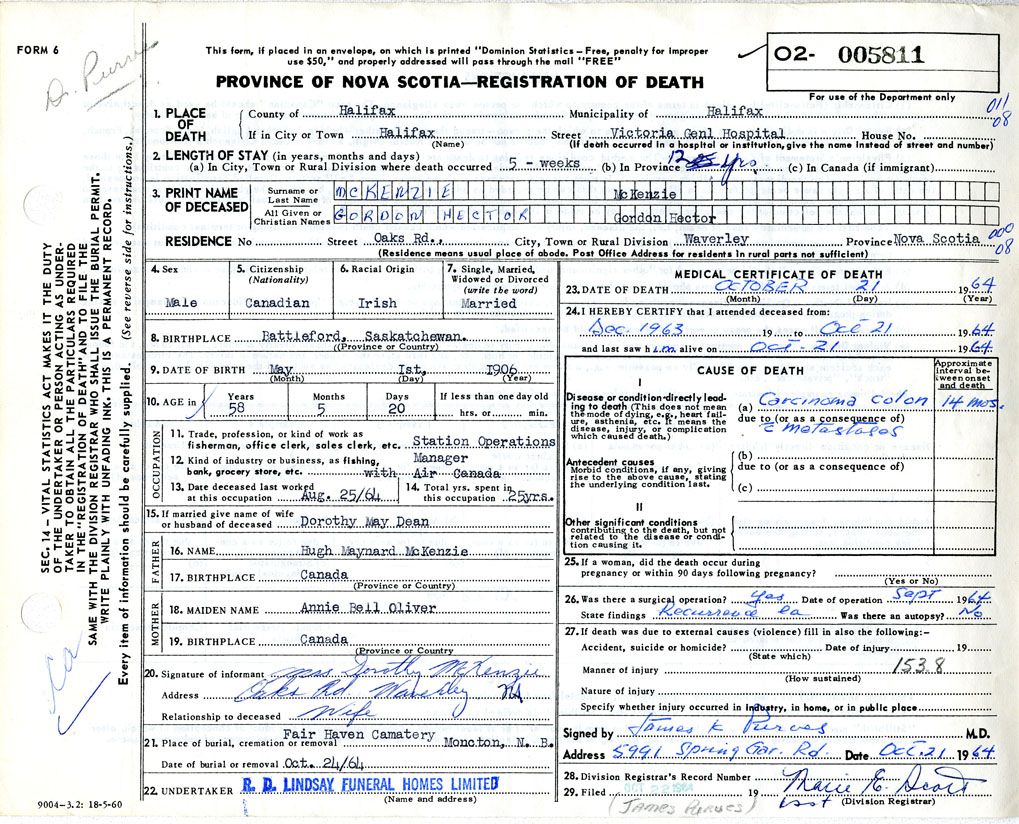 FORM 6
Dr. Purves
This form, if placed in an envelope, on which is printed "Dominion Statistics – Free, penalty for improper
use $50," and properly addressed will pass through the mail "FREE"
PROVINCE OF NOVA SCOTIA—REGISTRATION OF DEATH
O2- 005811
For use of the Department only
011
08
1. PLACE OF DEATH
County of Halifax Municipality of Halifax
If in City or Town Halifax Street Victoria Genl Hospital House No.
(Name) (If death occurred in a hospital or institution, give the name instead of street and number)
2. LENGTH OF STAY (in years, months and days)
(a) In City, Town or Rural Division where death occurred 5 - weeks (b) In Province 12 yrs. (c) In Canada (if immigrant)
3. PRINT NAME OF DECEASED
Surname or Last Name McKENZIE McKenzie
All Given or Christian Names GORDON HECTOR Gordon Hector
RESIDENCE No Street Oaks Rd., City, Town or Rural Division Waverley Province Nova Scotia
000
08
(Residence means usual place of abode. Post Office Address for residents in rural parts not sufficient)
4. Sex
Male
5. Citizenship
(Nationality)
Canadian
6. Racial Origin
Irish
7. Single, Married,
Widowed or Divorced
(write the word)
Married
8. BIRTHPLACE Battleford, Saskatchewan.
(Province or Country)
9. DATE OF BIRTH May 1st, 1906
(Month) (Day) (Year)
10. AGE in
Years Months Days If less than one day old
58 5 20 hrs. or min.
OCCUPATION
11. Trade, profession, or kind of work as
fisherman, office clerk, sales clerk, etc. Station Operations
12. Kind of industry or business, as fishing, Manager
bank, grocery store, etc. with Air Canada
13. Date deceased last worked
at this occupation Aug. 25/64
14. Total yrs. spent in
this occupation 25yrs.
15. If married give name of wife
or husband of deceased Dorothy May Dean
FATHER
16. NAME Hugh Maynard McKenzie
17. BIRTHPLACE Canada
(Province or Country)
MOTHER
18. MAIDEN NAME Annie Bell Oliver
19. BIRTHPLACE Canada
(Province or Country
20. Signature of informant Mrs Dorothy McKenzie
Address Oaks Rd Waverley NS
Relationship to deceased Wife
21. Place of burial, cremation or removal Fair Haven Camatery Moncton, N. B.
Date of burial or removal Oct. 24/64
22. UNDERTAKER R. D. LINDSAY FUNERAL HOMES LIMITED
(Name and address)
MEDICAL CERTIFICATE OF DEATH
23. DATE OF DEATH OCTOBER 21 1964
(Month) (Day) (Year)
24. I HEREBY CERTIFY that I attended deceased from:
Dec. 1963 19 to Oct 21 1964
and last saw him alive on Oct - 21 1964
CAUSE OF DEATH
Approximate
interval be-
tween onset
and death
I
Disease or condition directly lead-
ing to death (This does not mean
the mode of dying, e.g., heart fail-
ure, asthenia, etc. It means the
disease, injury, or complication
which caused death.)
(a) Carcinoma colon 14 mos.
due to (or as a consequence of)
c metastases
Antecedent causes
Morbid conditions, if any, giving
rise to the above cause, stating
the underlying condition last.
(b)
due to (or as a consequence of)
(c)
II
Other significant conditions
contributing to the death, but not
related to the disease or condi-
tion causing it.
25. If a woman, did the death occur during
pregnancy or within 90 days following pregnancy?
(Yes or No)
26. Was there a surgical operation? yes Date of operation Sept 1964
State findings Recurrence ca Was there an autopsy? No
27. If death was due to external causes (violence) fill in also the following:–
Accident, suicide or homicide? Date of injury 19
(State which)
Manner of injury 153.8
(How sustained)
Nature of injury
Specify whether injury occurred in industry, in home, or in public place
Signed by James K Purves M.D.
Address 5991 Spring Gar. Rd. Date Oct. 21 1964
28. Division Registrar's Record Number
29. Filed 19 Marie E. Scott
(Division Registrar)
(JAMES PURVES)
SEC. 14 – VITAL STATISTICS ACT MAKES IT THE DUTY
OF THE UNDERTAKER OR PERSON ACTING AS UNDER-
TAKER TO OBTAIN ALL THE PARTICULARS REQUIRED
IN THE "REGISTRATION OF DEATH" AND TO FILE THE
SAME WITH THE DIVISION REGISTRAR WHO SHALL ISSUE THE BURIAL PERMIT.
WRITE PLAINLY WITH UNFADING INK. THIS IS A PERMANENT RECORD.
Every item of information should be carefully supplied. (See reverse side for instructions.)
ca
9004–3.2: 18-5-60